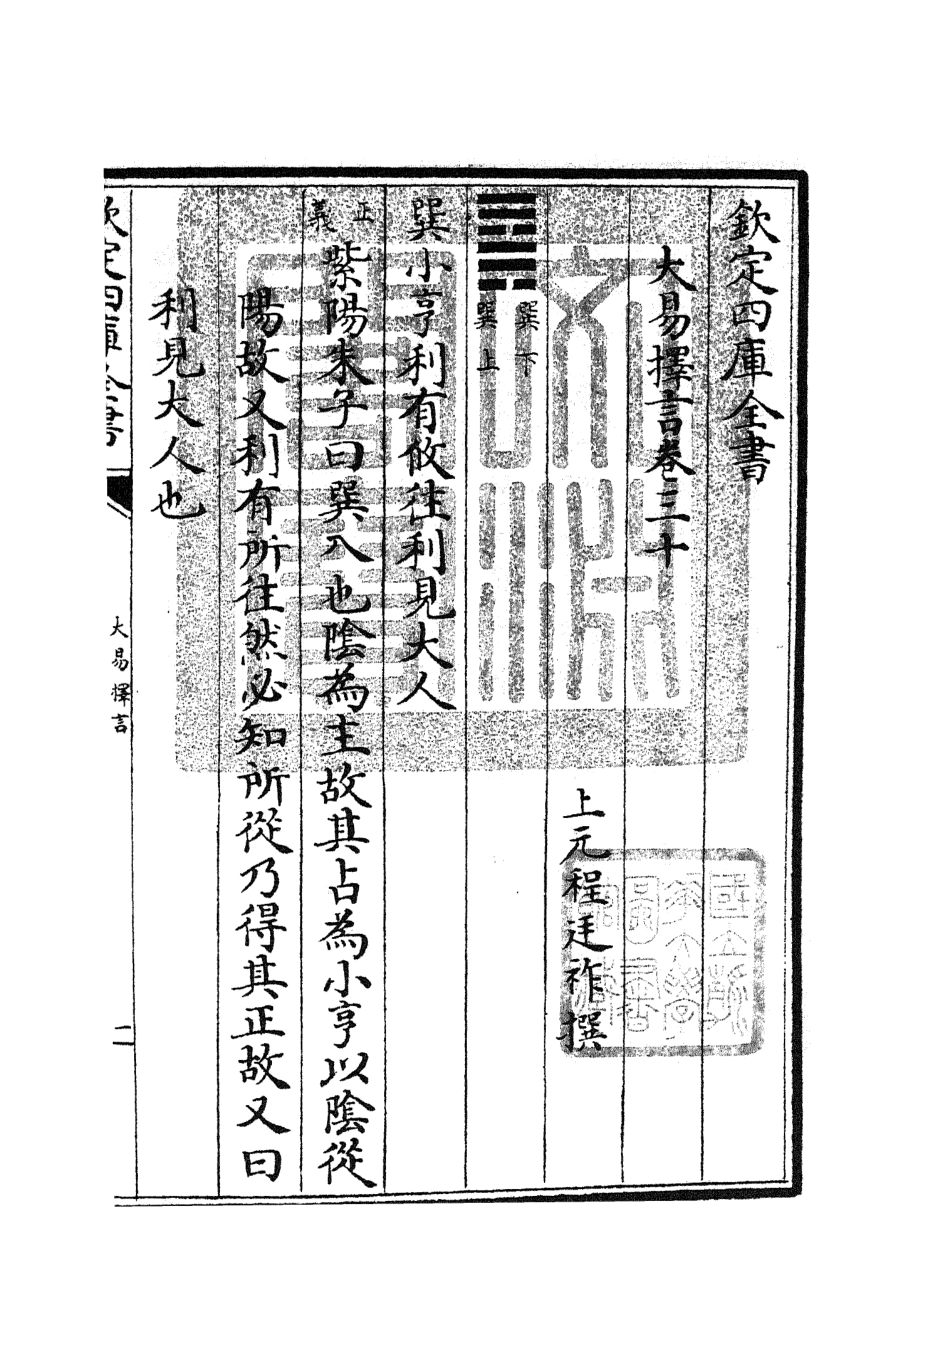 欽定四庫全書
大易擇言卷三十
上元程廷祚撰
巽下
巽上
巽小亨利有攸往利見大人
正義
紫陽朱子曰巽入也陰為主故其占為小亨以陰從
陽故又利有所往然必知所從乃得其正故又曰
利見大人也
欽定四庫全書
大易擇言
二